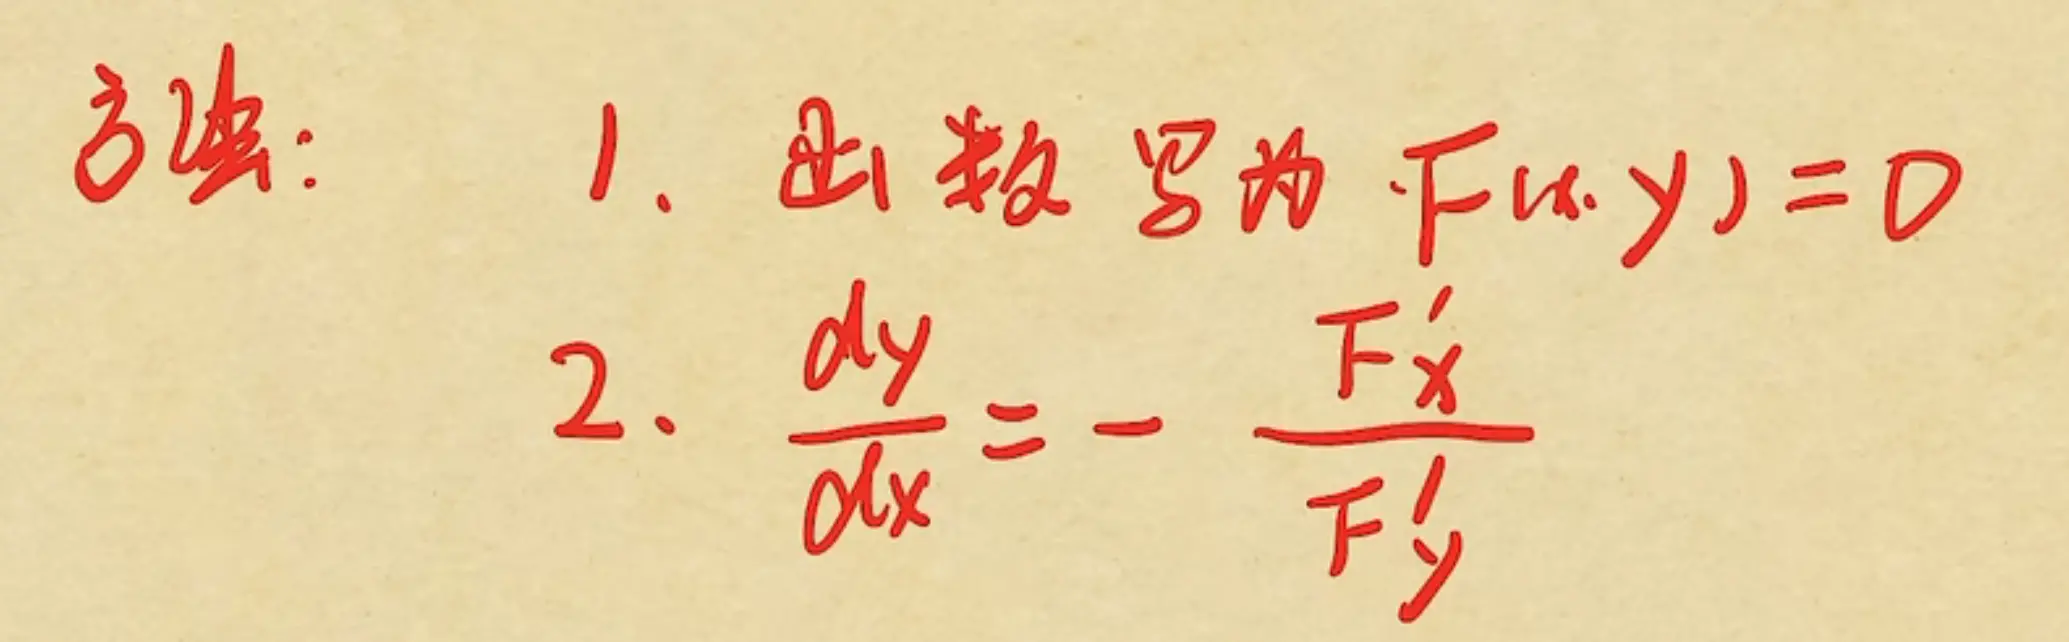 方法: 1. 函数写为 F(x.y)=0
2. dy/dx = - F'x/F'y